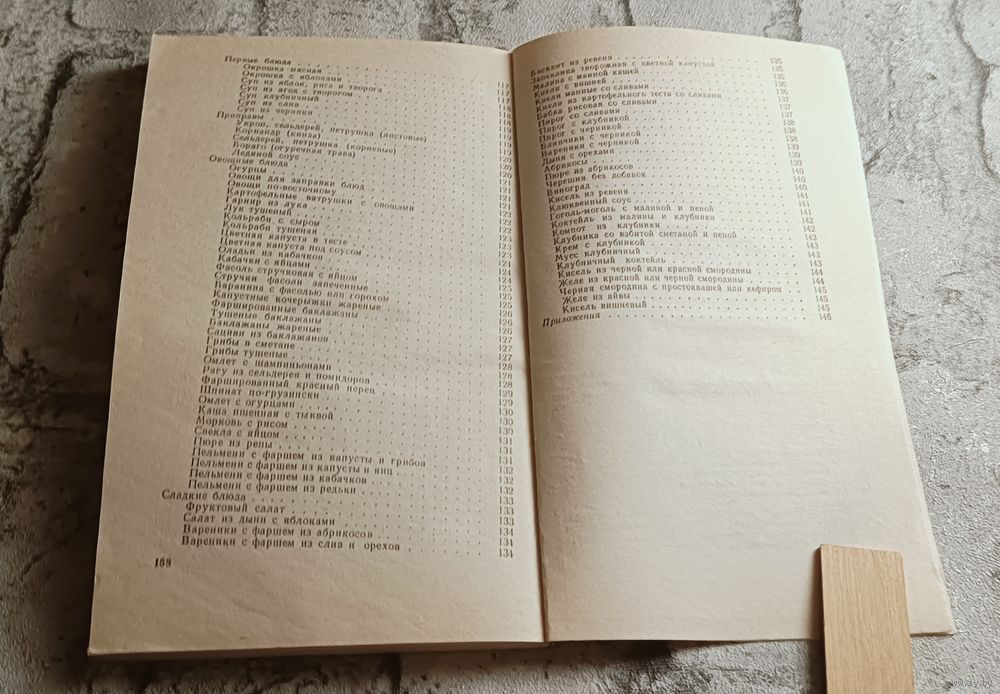 Первые блюда
Окрошка мясная
Окрошка с яблоками
Суп из яблок, риса и творога 117
Суп из ягод с творогом 117
Суп клубничный 117
Суп из слив 118
Суп из черники 118
Приправы 119
Укроп, сельдерей, петрушка (листовые) 119
Кориандр (кинза) 119
Сельдерей, петрушка (корневые)
Бораго (огуречная трава) 120
Ледяной соус 120
Овощные блюда 121
Огурцы 121
Овощи для заправки блюд 121
Овощи по-восточному 121
Картофельные ватрушки с овощами
Гарнир из лука 122
Лук тушеный 122
Кольраби с сыром 122
Кольраби тушеная 123
Цветная капуста в тесте 123
Цветная капуста под соусом 123
Оладьи из кабачков 124
Кабачки с яйцами 124
Фасоль стручковая с яйцом 124
Стручки фасоли запеченные 125
Баранина с фасолью или горохом 125
Капустные кочерыжки жареные 126
Фаршированные баклажаны 126
Тушеные баклажаны 126
Баклажаны жареные 127
Сациви из баклажанов 127
Грибы в сметане 127
Грибы тушеные 128
Омлет с шампиньонами 128
Рагу из сельдерея и помидоров 128
Фаршированный красный перец 129
Шпинат по-грузински 129
Омлет с огурцами 130
Каша пшенная с тыквой 130
Морковь с рисом 130
Свекла с яйцом 131
Пюре из репы 131
Пельмени с фаршем из капусты и грибов
Пельмени с фаршем из капусты и яиц 132
Пельмени с фаршем из кабачков 132
Пельмени с фаршем из редьки 132
Сладкие блюда 133
Фруктовый салат 133
Салат из дыни с яблоками 133
Вареники с фаршем из абрикосов 134
Вареники с фаршем из слив и орехов 134
158
Бисквит из ревеня 135
Запеканка творожная с цветной капустой 135
Малина с манной кашей 135
Кисели с вишней 136
Кисли манные со сливами 136
Кисли из картофельного теста со сливами 137
Бабка рисовая со сливами 137
Пирог со сливами 137
Пирог с клубникой 138
Пирог с черникой 138
Блинчики с черникой 138
Вареники с черникой 139
Дыня с орехами 139
Абрикосы 139
Пюре из абрикосов 140
Черешня без добавок 140
Виноград 140
Кисель из ревеня 141
Клюквенный соус 141
Гоголь-моголь с малиной и пеной 141
Коктейль из малины и клубники 142
Компот из клубники 142
Клубника со взбитой сметаной и пеной 142
Крем с клубникой 143
Мусс клубничный 143
Клубничный коктейль 143
Кисель из черной или красной смородины 144
Желе из красной или черной смородины 144
Черная смородина с простоквашей или кефиром 145
Желе из айвы 145
Кисель вишневый 145
Приложения 146